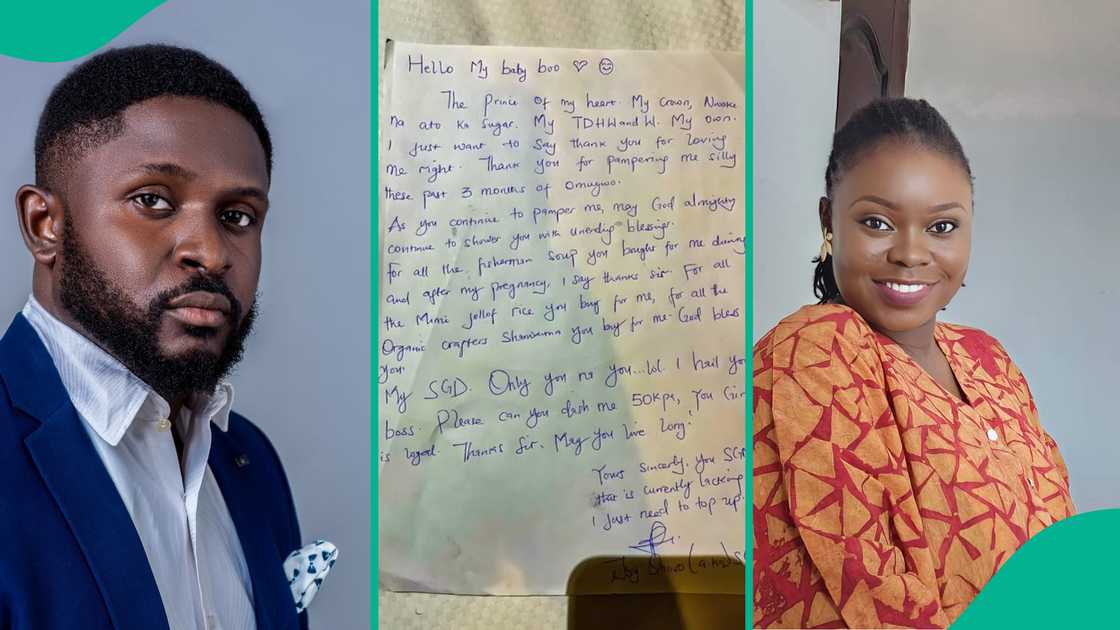 Hello My baby boo ♡ 😊
The Prince of my heart. My Crown, Nwoke
na ato ka Sugar. My TDHW and W. My own.
I just want to say thank you for loving
me right. Thank you for pampering me silly
these past 3 months of Omugwo.
As you continue to pamper me, may God almighty
continue to shower you with unendig blessings.
For all the fisherman Soup you bought for me during
and after my pregnancy, I say thanks sir. For all
the Mimi Jollof rice you buy for me, for all the
Organic crafters Shawarma you buy for me. God bless
you.
My SGD. Only you na you...lol. I hail you
boss. Please can you dash me 50kps, You Gir
is loyal. Thanks Sir. May you live long!
Yours Sincerely, You SGD
that is currently lacking
I just need to top up.